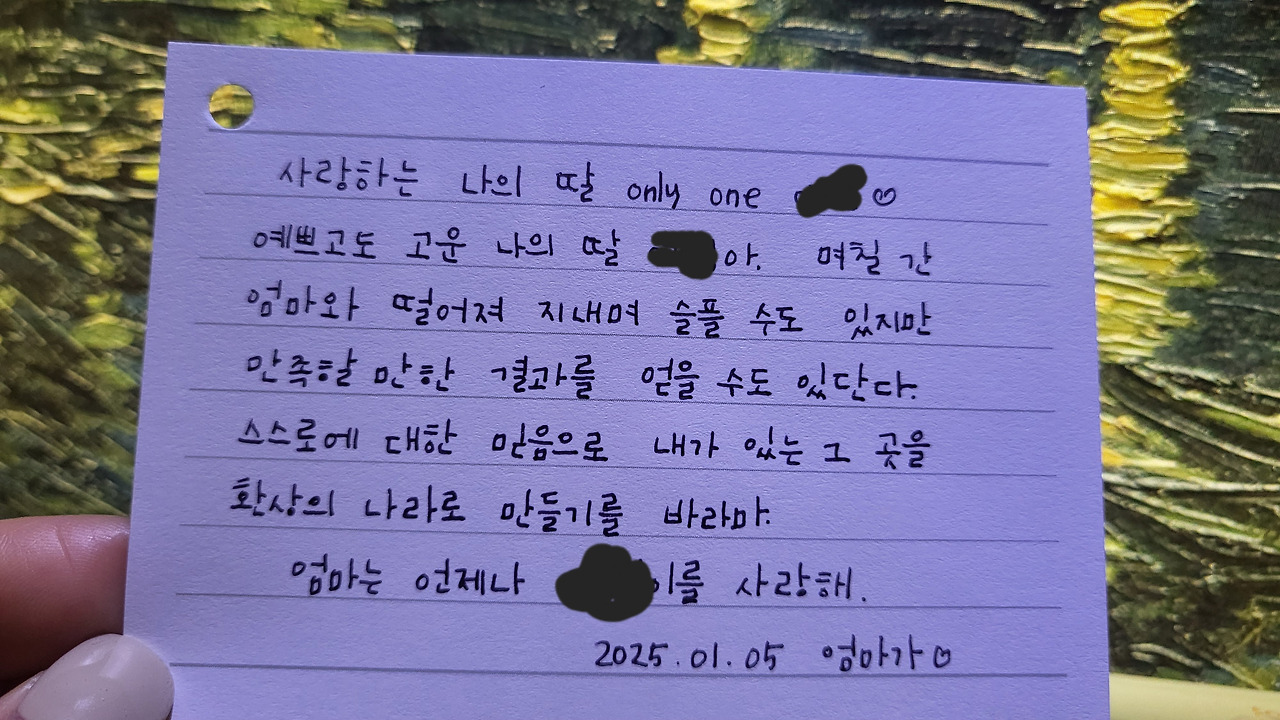 사랑하는 나의 딸 only one ♡
예쁘고도 고운 나의 딸 아. 며칠 간
엄마와 떨어져 지내며 슬플 수도 있지만
만족할 만한 결과를 얻을 수도 있단다.
스스로에 대한 믿음으로 내가 있는 그 곳을
환상의 나라로 만들기를 바라마.
엄마는 언제나 이를 사랑해.
2025.01.05 엄마가♡